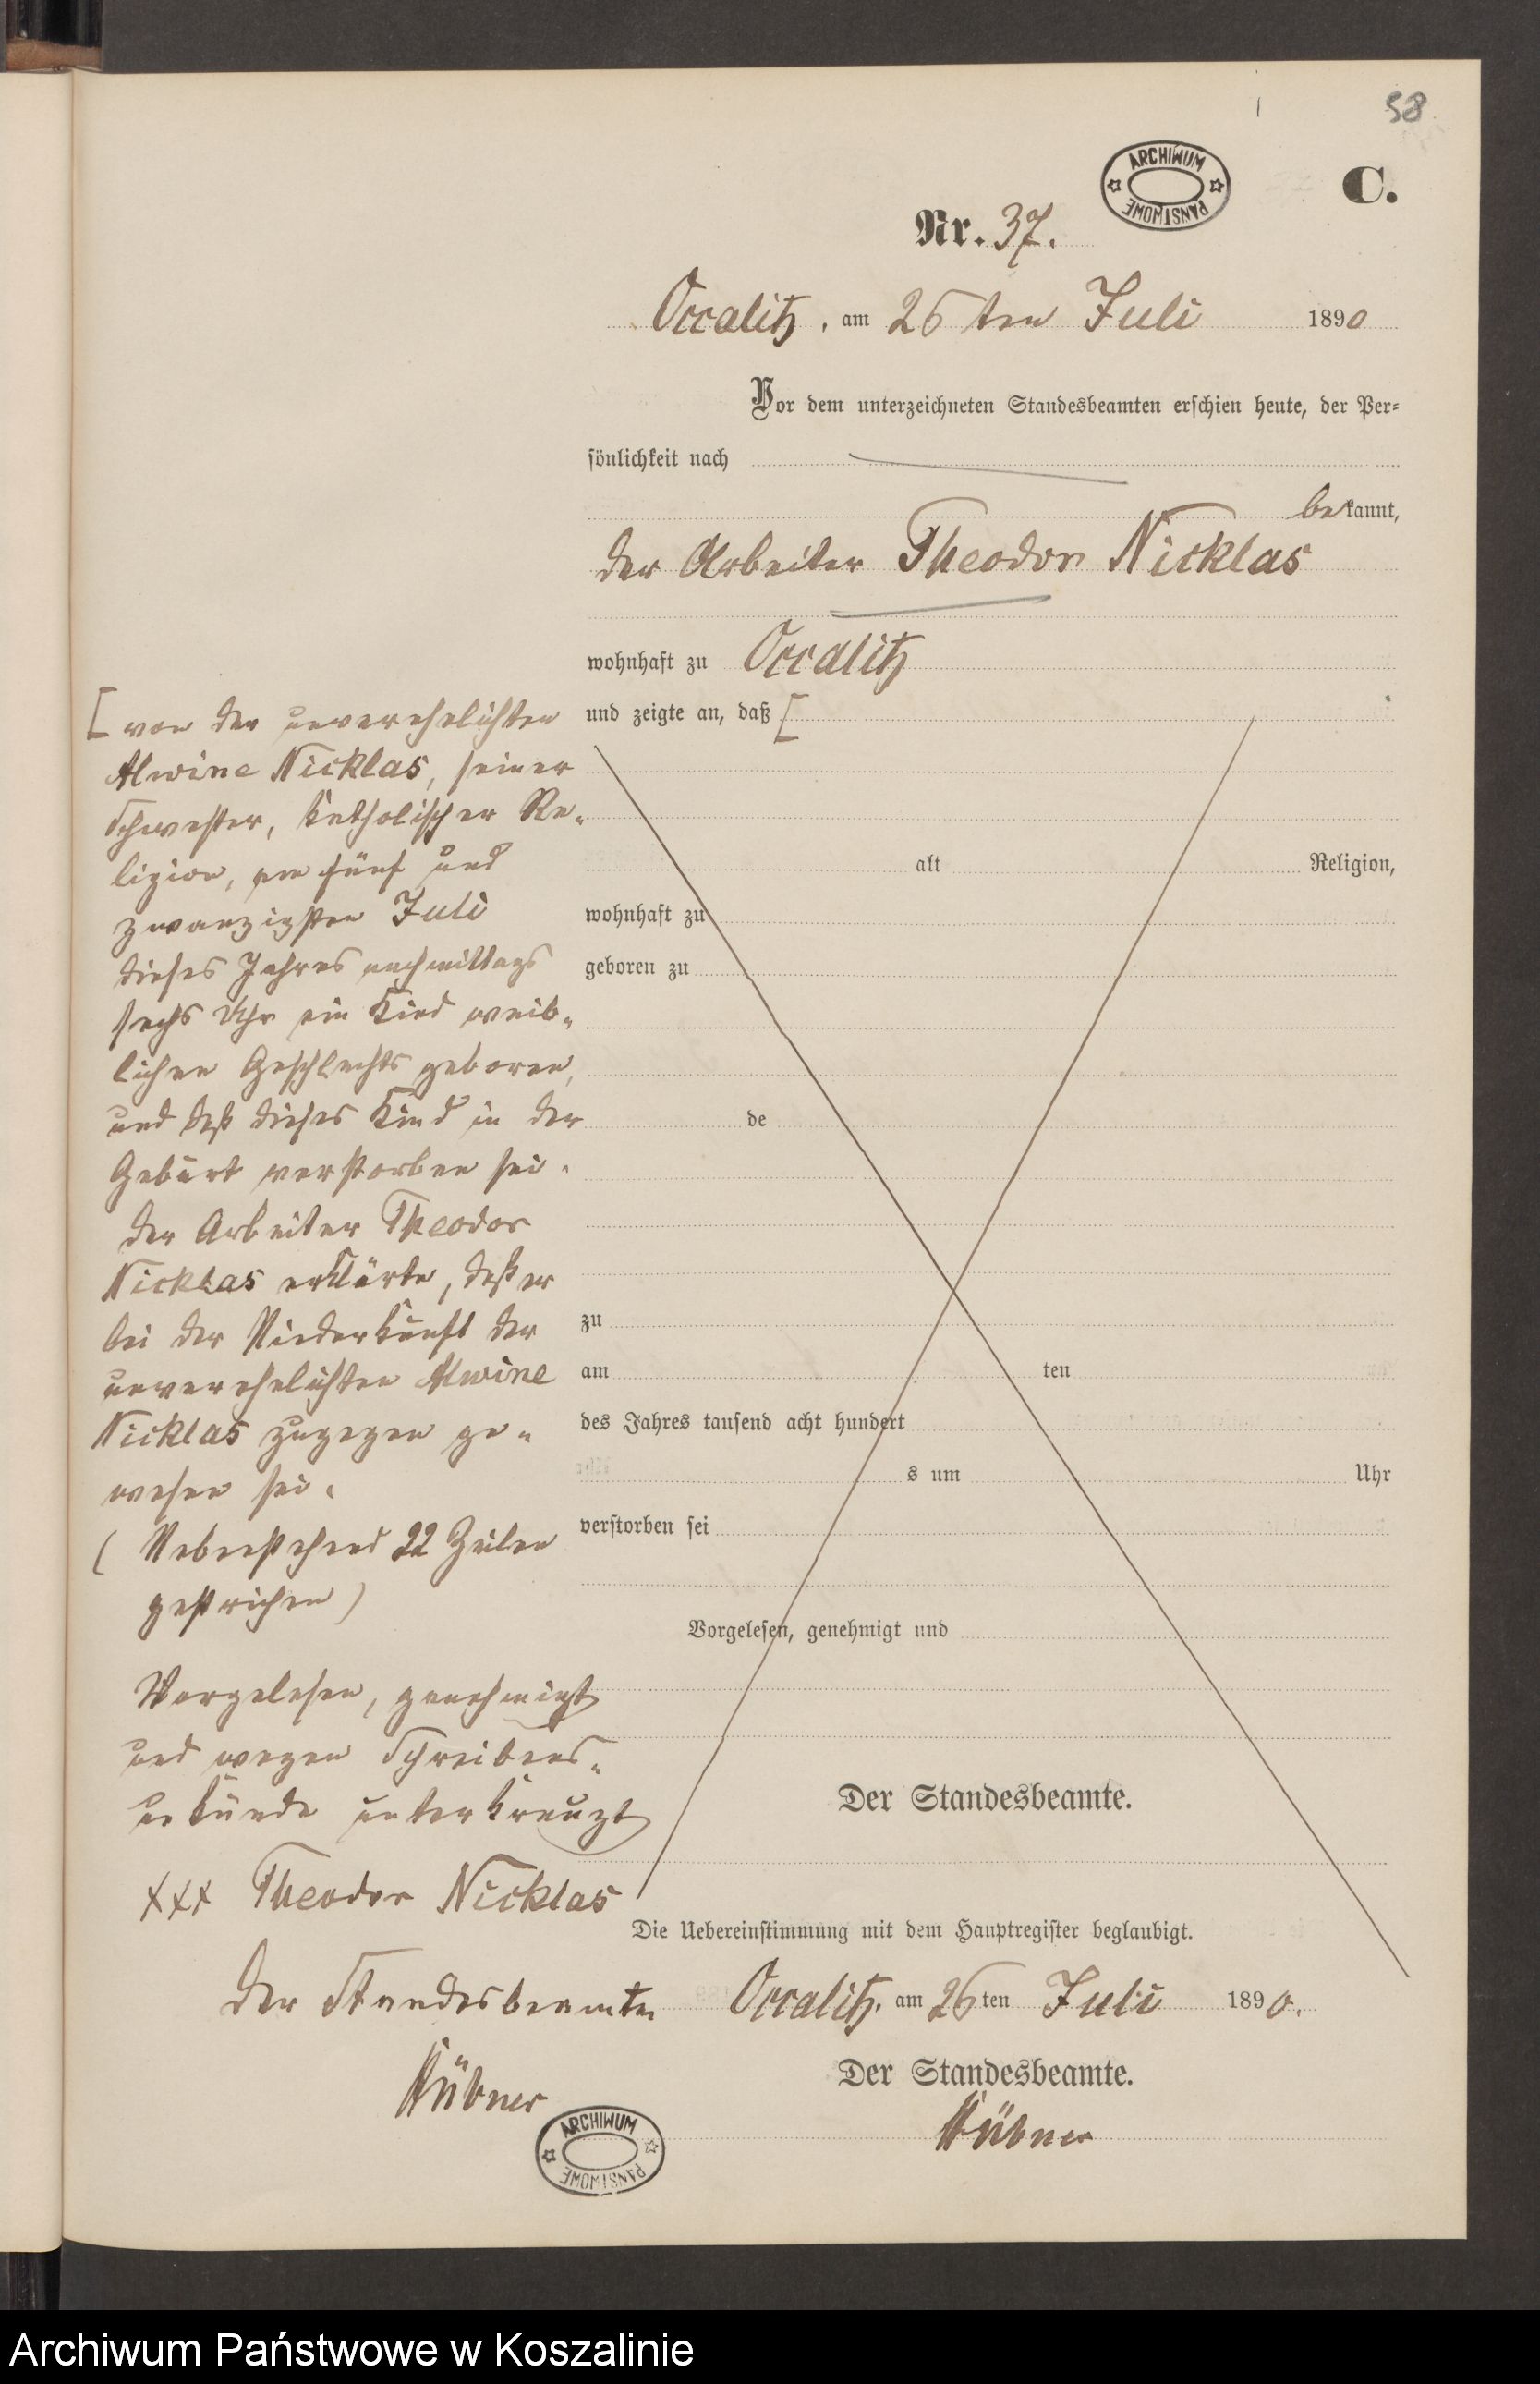 58
ARCHIWUM PAŃSTWOWE
C.
Nr. 37.
Occalitz, am 26 ten Juli 1890
Vor dem unterzeichneten Standesbeamten erschien heute, der Per-
sönlichkeit nach
bekannt,
der Arbeiter Theodor Nicklas
wohnhaft zu Occalitz
und zeigte an, daß [
[ von der unverehelichten
Alwine Nicklas, seiner
Schwester, katholischer Re-
ligion, am fünf und
zwanzigsten Juli
dieses Jahres nachmittags
sechs Uhr ein Kind weib-
lichen Geschlechts geboren,
und daß dieses Kind in der
Geburt verstorben sei.
Der Arbeiter Theodor
Nicklas erklärte, daß er
bei der Niederkunft der
unverehelichten Alwine
Nicklas zugegen ge-
wesen sei.
( Nebenstehend 22 Zeilen
gestrichen )
Vorgelesen, genehmigt
und wegen Schreibens-
unkunde unterkreuzt
xxx Theodor Nicklas
Der Standesbeamte
Hübner
ARCHIWUM PAŃSTWOWE
alt Religion,
wohnhaft zu
geboren zu
de
zu
am ten
des Jahres tausend acht hundert
s um Uhr
verstorben sei
Vorgelesen, genehmigt und
Der Standesbeamte.
Die Uebereinstimmung mit dem Hauptregister beglaubigt.
Occalitz, am 26 ten Juli 1890.
Der Standesbeamte.
Hübner
Archiwum Państwowe w Koszalinie